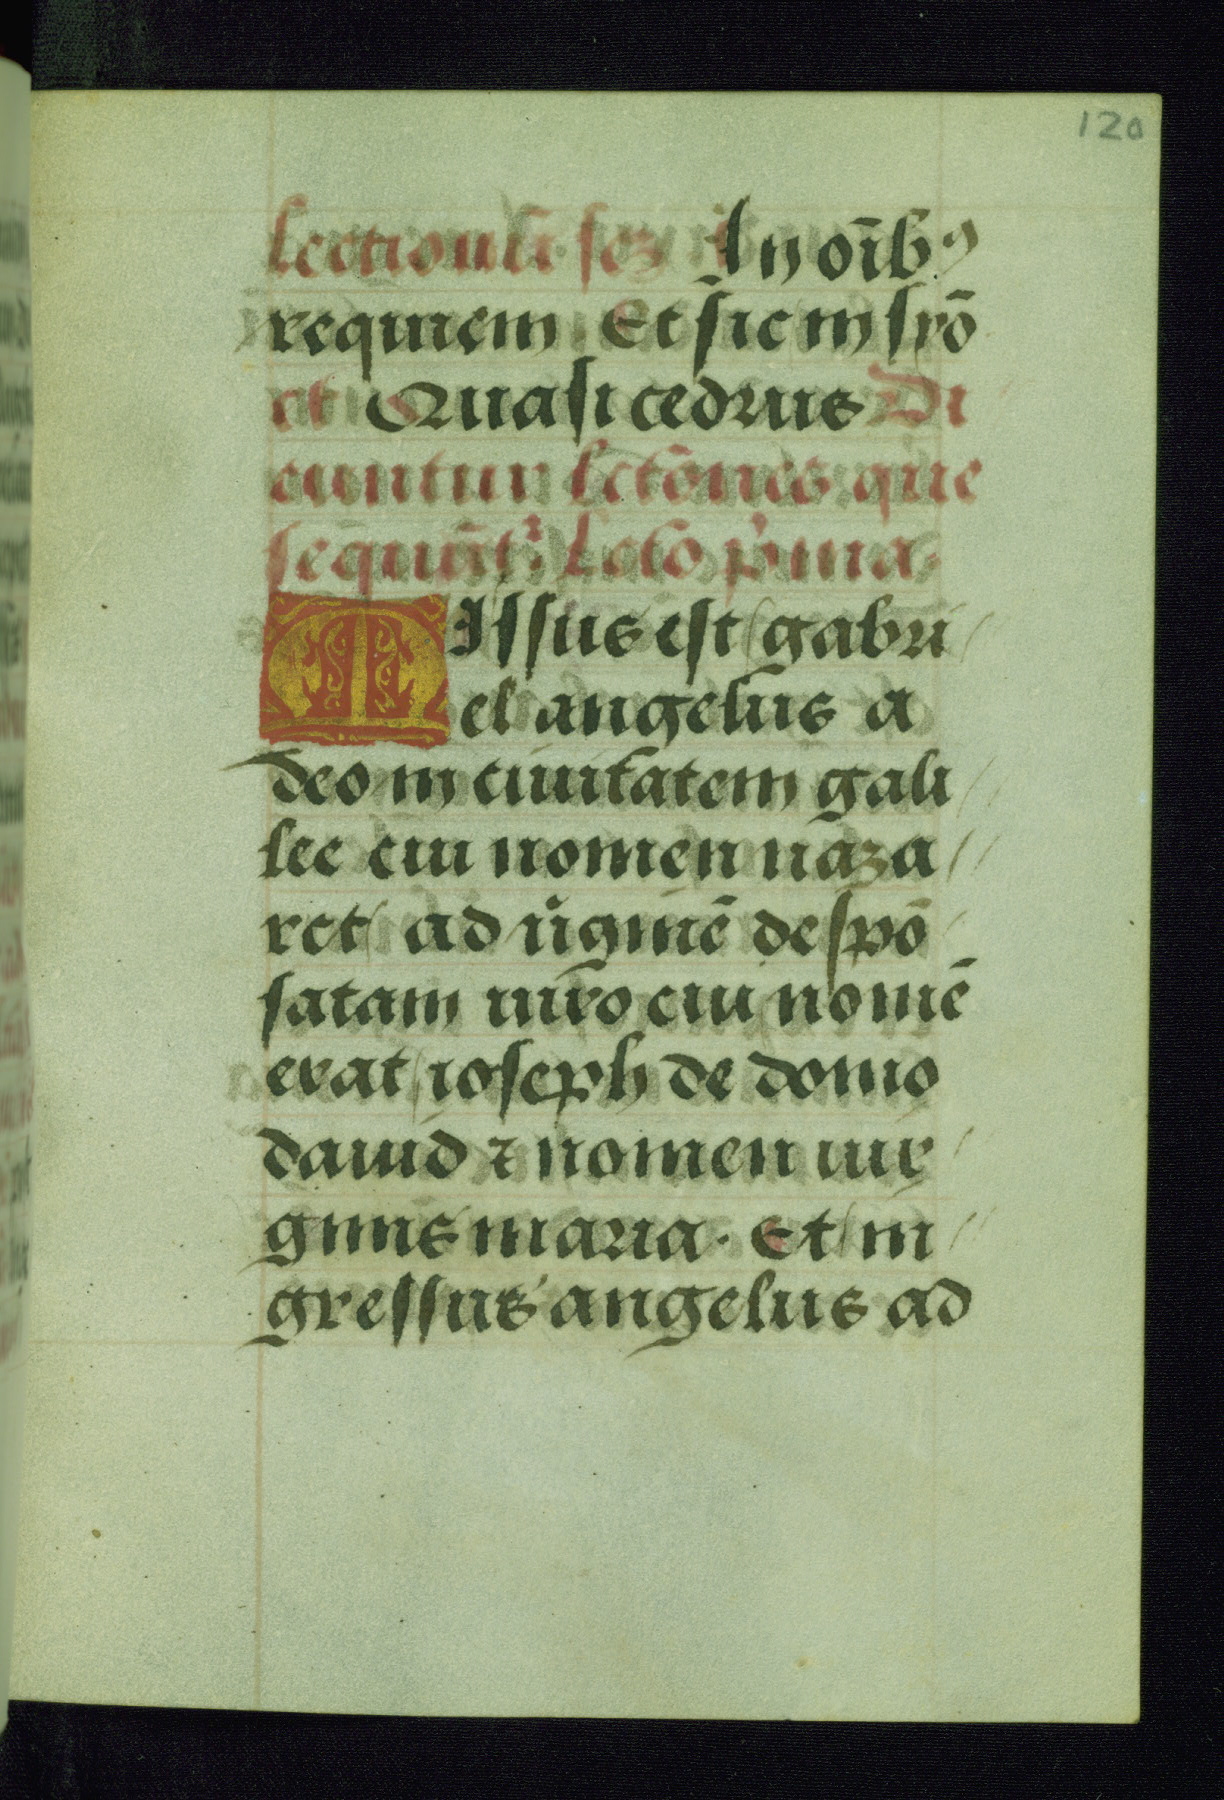 120
lectionu In oĩbꝰ
requiem Et sic in
et Quasi cedrus Di
cuntur lectōnes que
sequũtᷣ Lctō pͥma
MIssus est gabri
el angelus a
deo in ciuitatem gali
lee cui nomen naza
ret ad uͥginē despō
satam uiro cui nomē
erat ioseph de domo
dauid ⁊ nomen uir
ginis maria. Et in
gressus angelus ad